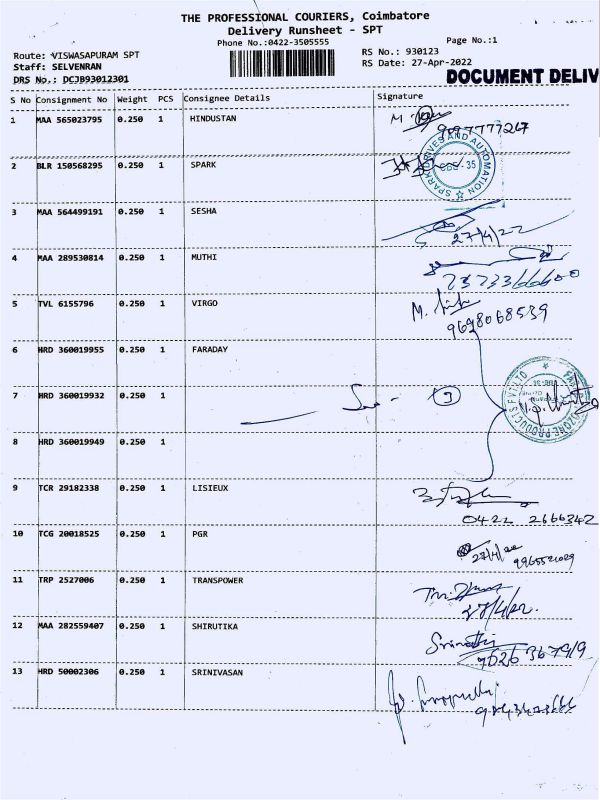 THE PROFESSIONAL COURIERS, Coimbatore
Delivery Runsheet - SPT
Phone No.:0422-3505555
Page No.:1
Route: VISWASAPURAM SPT
RS No.: 930123
Staff: SELVENRAN
RS Date: 27-Apr-2022
DRS No.: DCJB93012301
DOCUMENT DELIV
S No Consignment No Weight PCS Consignee Details Signature
1 MAA 565023795 0.250 1 HINDUSTAN
2 BLR 150568295 0.250 1 SPARK
SPARK DRIVES AND AUTOMATION
3 MAA 564499191 0.250 1 SESHA
27/4/22
4 MAA 289530814 0.250 1 MUTHI
5 TVL 6155796 0.250 1 VIRGO
M.
9698068539
6 HRD 360019955 0.250 1 FARADAY
7 HRD 360019932 0.250 1
3
8 HRD 360019949 0.250 1
9 TCR 29182338 0.250 1 LISIEUX
0422 2666342
10 TCG 20018525 0.250 1 PGR
27/4/22
11 TRP 2527006 0.250 1 TRANSPOWER
27/4/22.
12 MAA 282559407 0.250 1 SHIRUTIKA
13 HRD 50002306 0.250 1 SRINIVASAN